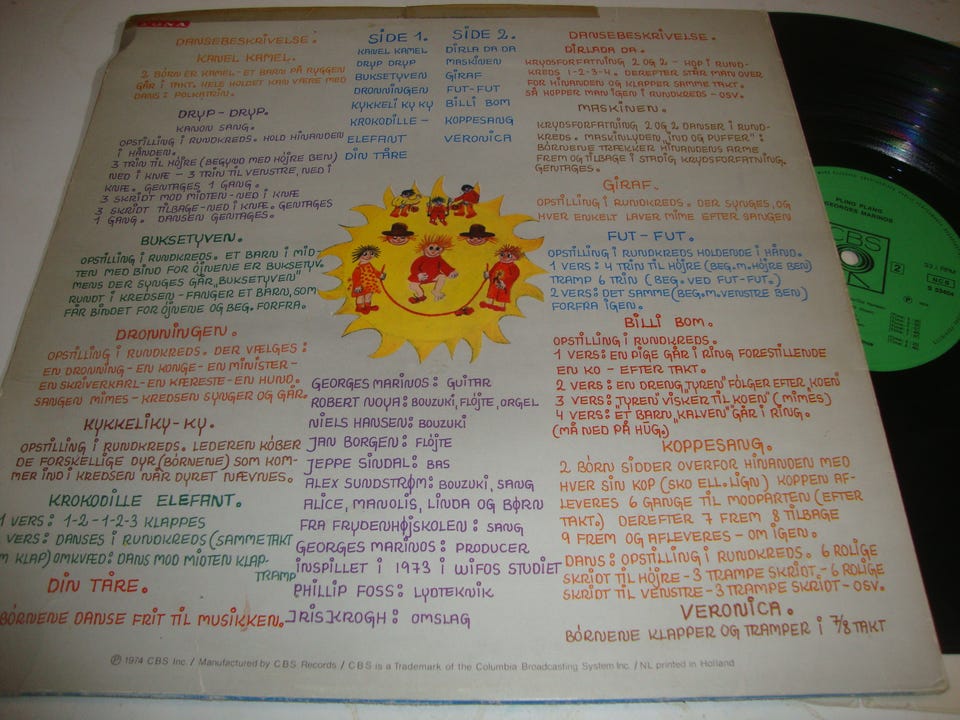 LUNA
DANSEBESKRIVELSE.
KANEL KAMEL.
2 BÖRN ER KAMEL - ET BARN PÅ RYGGEN
GÅR I TAKT. HELE HOLDET KAN VÆRE MED
DANS: POLKATRIN.
DRYP - DRYP.
KANON SANG.
OPSTILLING I RUNDKREDS. HOLD HINANDEN
I HÅNDEN.
3 TRIN TIL HÖJRE (BEGYND MED HÖJRE BEN)
NED I KNÆ - 3 TRIN TIL VENSTRE, NED I
KNÆ. GENTAGES 1 GANG.
3 SKRIDT MOD MIDTEN - NED I KNÆ
3 SKRIDT TILBAGE - NED I KNÆ. GENTAGES
1 GANG. DANSEN GENTAGES.
BUKSETYVEN.
OPSTILLING I RUNDKREDS. ET BARN I MID-
TEN MED BIND FOR ÖJNENE ER BUKSETYV.
MENS DER SYNGES GÅR "BUKSETYVEN"
RUNDT I KREDSEN - FANGER ET BARN, SOM
FÅR BINDET FOR ÖJNENE OG BEG. FORFRA.
DRONNINGEN.
OPSTILLING I RUNDKREDS. DER VÆLGES:
EN DRONNING - EN KONGE - EN MINISTER -
EN SKRIVERKARL - EN KÆRESTE - EN HUND.
SANGEN MIMES - KREDSEN SYNGER OG GÅR.
KYKKELIKY - KY.
OPSTILLING I RUNDKREDS. LEDEREN KÖBER
DE FORSKELLIGE DYR (BÖRNENE) SOM KOM-
MER IND I KREDSEN NÅR DYRET NÆVNES.
KROKODILLE ELEFANT.
1 VERS: 1-2-1-2-3 KLAPPES
VERS: DANSES I RUNDKREDS (SAMME TAKT
M KLAP) OMKVÆD: DANS MOD MIDTEN KLAP-
TRAMP
DIN TÅRE.
BÖRNENE DANSE FRIT TIL MUSIKKEN.
SIDE 1.
KANEL KAMEL
DRYP DRYP
BUKSETYVEN
DRONNINGEN
KYKKELI KY KY
KROKODILLE -
ELEFANT
DIN TÅRE
SIDE 2.
DIRLA DA DA
MASKINEN
GIRAF
FUT-FUT
BILLI BOM
KOPPESANG
VERONICA
GEORGES MARINOS: GUITAR
ROBERT NOYA: BOUZUKI, FLÖJTE, ORGEL
NIELS HANSEN: BOUZUKI
JAN BORGEN: FLÖJTE
JEPPE SINDAL: BAS
ALEX SUNDSTRØM: BOUZUKI, SANG
ALICE, MANOLIS, LINDA OG BØRN
FRA FRYDENHØJSKOLEN: SANG
GEORGES MARINOS: PRODUCER
INSPILLET I 1973 I WIFOS STUDIET
PHILLIP FOSS: LYDTEKNIK
IRIS KROGH: OMSLAG
DANSEBESKRIVELSE.
DIRLADA DA.
KRYDSFORFATNING 2 OG 2 - HOP I RUND-
KREDS 1-2-3-4. DEREFTER STÅR MAN OVER
FOR HINANDEN OG KLAPPER SAMME TAKT.
SÅ HOPPER MAN IGEN I RUNDKREDS - OSV.
MASKINEN.
KRYDSFORFATNING 2 OG 2 DANSER I RUND-
KREDS. MASKINLYDEN "IND OG PUFFER":
BÖRNENE TRÆKKER HINANDENS ARME
FREM OG TILBAGE I STADIG KRYDSFORFATNING.
GENTAGES.
GIRAF.
OPSTILLING I RUNDKREDS. DER SYNGES, OG
HVER ENKELT LAVER MIME EFTER SANGEN
FUT - FUT.
OPSTILLING I RUNDKREDS HOLDENDE I HÅND.
1 VERS: 4 TRIN TIL HÖJRE (BEG. M. HÖJRE BEN)
TRAMP 6 TRIN (BEG. VED FUT-FUT.)
2 VERS: DET SAMME (BEG. M. VENSTRE BEN)
FORFRA IGEN.
BILLI BOM.
OPSTILLING I RUNDKREDS.
1 VERS: EN PIGE GÅR I RING FORESTILLENDE
EN KO - EFTER TAKT.
2 VERS: EN DRENG "TYREN" FÖLGER EFTER "KOEN"
3 VERS: "TYREN" VISKER TIL "KOEN" (MIMES)
4 VERS: "ET BARN, KALVEN" GÅR I RING.
(MÅ NED PÅ HUG.)
KOPPESANG.
2 BÖRN SIDDER OVERFOR HINANDEN MED
HVER SIN KOP (SKO ELL. LIGN) KOPPEN AF-
LEVERES 6 GANGE TIL MODPARTEN (EFTER
TAKT.) DEREFTER 7 FREM 8 TILBAGE
9 FREM OG AFLEVERES - OM IGEN.
DANS: OPSTILLING I RUNDKREDS. 6 ROLIGE
SKRIDT TIL HÖJRE - 3 TRAMPE SKRIDT - 6 ROLIGE
SKRIDT TIL VENSTRE - 3 TRAMPE SKRIDT - OSV.
VERONICA.
BÖRNENE KLAPPER OG TRAMPER I 7/8 TAKT
℗ 1974 CBS Inc. / Manufactured by CBS Records / CBS is a Trademark of the Columbia Broadcasting System Inc. / NL printed in Holland
PLING PLANG
GEORGES MARINOS
CBS
2
33 RPM
NCB
S 53404